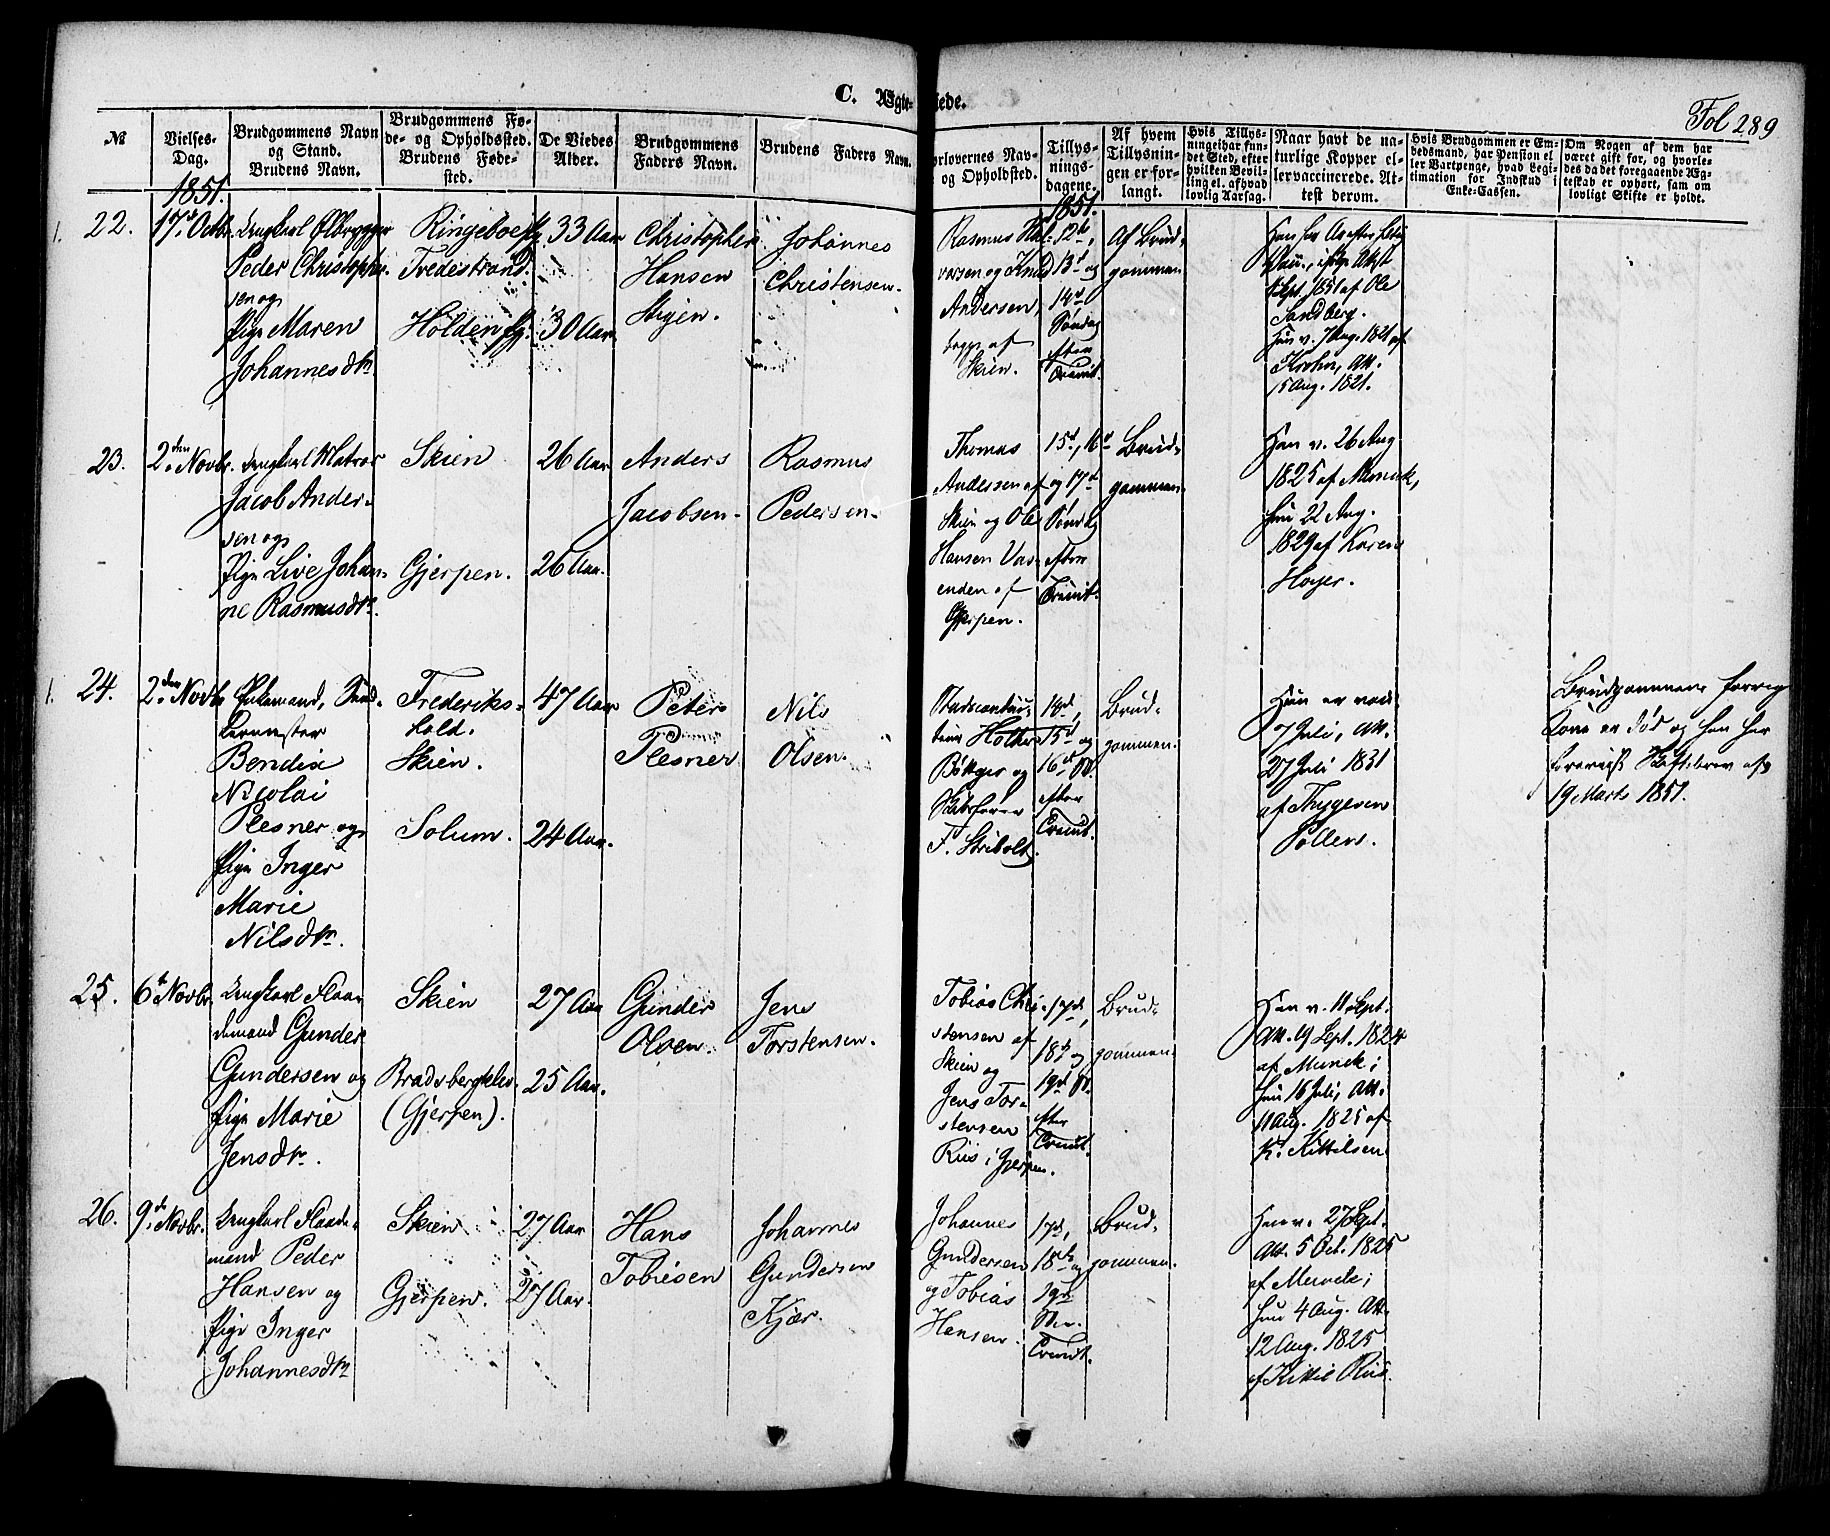 C. Ægte-
Fol 289
№
Vielses-
Dag.
Brudgommens Navn
og Stand.
Brudens Navn.
Brudgommens Fø-
de- og Opholdssted.
Brudens Føde-
sted.
De Viedes
Alder.
Brudgommens
Faders Navn.
Brudens Faders Navn.
orlovernes Nav-
og Opholdsted.
Tillys-
nings-
dagene.
Af hvem
Tillysnin-
gen er for-
langt.
Hvis Tillys-
ningei har fun-
det Sted, efter
hvilken Bevil-
ling el. af hvad
lovlig Aarsag.
Naar havt de na-
turlige Kopper el-
ler vaccinerede. At-
test derom.
Hvis Brudgommen er Em-
bedsmand, har Pension el
ler Vartpenge, hvad Legi-
timation for Indskud i
Enke-Cassen.
Om Nogen af dem har
været gift før, og hvorle-
des da det foregaaende Æg-
teskab er ophørt, sam om
lovligt Skifte er holdt.
1851.
1851.
1.
22.
17d Octbr.
Ungkarl Ølbrygger
Peder Christopher-
sen og
Pige Maren
Johannesdtr.
Ringeboe
Tredestrand.
Holden
33 Aar
30 Aar
Christopher
Hansen
Stigen.
Johannes
Christensen.
Rasmus Hal-
vorsen og Knud
Andersen,
begge af
Skien.
12te,
13d og
14d
Søndag
efter
Trinit.
Af Brud-
gommen
1851 af Ole
Sandberg.
Hun v. 7 Aug. 1821 af
Krohn, Att.
15 Aug. 1821.
23.
2den Novbr.
Ungkarl Matros
Jacob Ander-
sen og
Pige Live Johan-
ne Rasmusdtr.
Skien
Gjerpen.
26 Aar
26 Aar.
Anders
Jacobsen-
Rasmus
Pedersen-
Thomas
Andersen af
Skien og Ole
Hansen Var-
enden af
Gjerpen.
15d, 16d
og 17d
Søndag
efter
Trinit.
Brud-
gommen.
Han v. 26 Aug
1825 af Munck,
hun 22 Aug.
1829 af Karen
Høyer.
1.
24.
2den Novbr
Enkemand,
Bendix
Nicolai
Plesner og
Pige Inger
Marie
Nilsdtr.
Frederiks-
hold.
Skien.
Solum.
47 Aar
24 Aar.
Peter
Plesner
Nils
Olsen.
Holther
Bøttger og
F. Stribolt.
14d,
15d og
16d
efter
Trinit.
Brud-
gommen.
Hun er vacc.
7 Juli, Att.
27 Juli 1831
af Thygesen
Pollen.
Brudgommens forrige
Kone er død og han har
foreviist Skiftebrev af
19 Marts 1851.
25.
6te Novbr.
Ungkarl Flaa-
demand Gunder
Gundersen og
Pige Marie
Jensdtr.
Skien
Bradsbergkleiv
(Gjerpen).
27 Aar
25 Aar.
Gunder
Olsen.
Jens
Torstensen.
Tobias Chri-
stensen af
Skien og
Jens Tor-
stensen
Riis i Gjerpen.
17d,
18d og
19d
efter
Trinit.
Brud-
gommen.
Han v. 11 Sept.
Att. 19 Sept. 1824
af Munck;
hun 16 Juli, Att.
11 Aug. 1825 af
K. Kittelsen
26.
9de Novbr.
Ungkarl Flaade-
mand Peder
Hansen og
Pige Inger
Johannesdtr
Skien
Gjerpen.
27 Aar
27 Aar.
Hans
Tobiesen
Johannes
Gundersen
Kjær.
Johannes
Gundersen
og Tobias
Hansen.
17d,
18d og
19d
Trinit.
Brud-
gommen.
Han v. 27 Sept.
Att. 5 Oct. 1825
af Munck;
hun 4 Aug. Att.
12 Aug. 1825
af Kittil Riis.